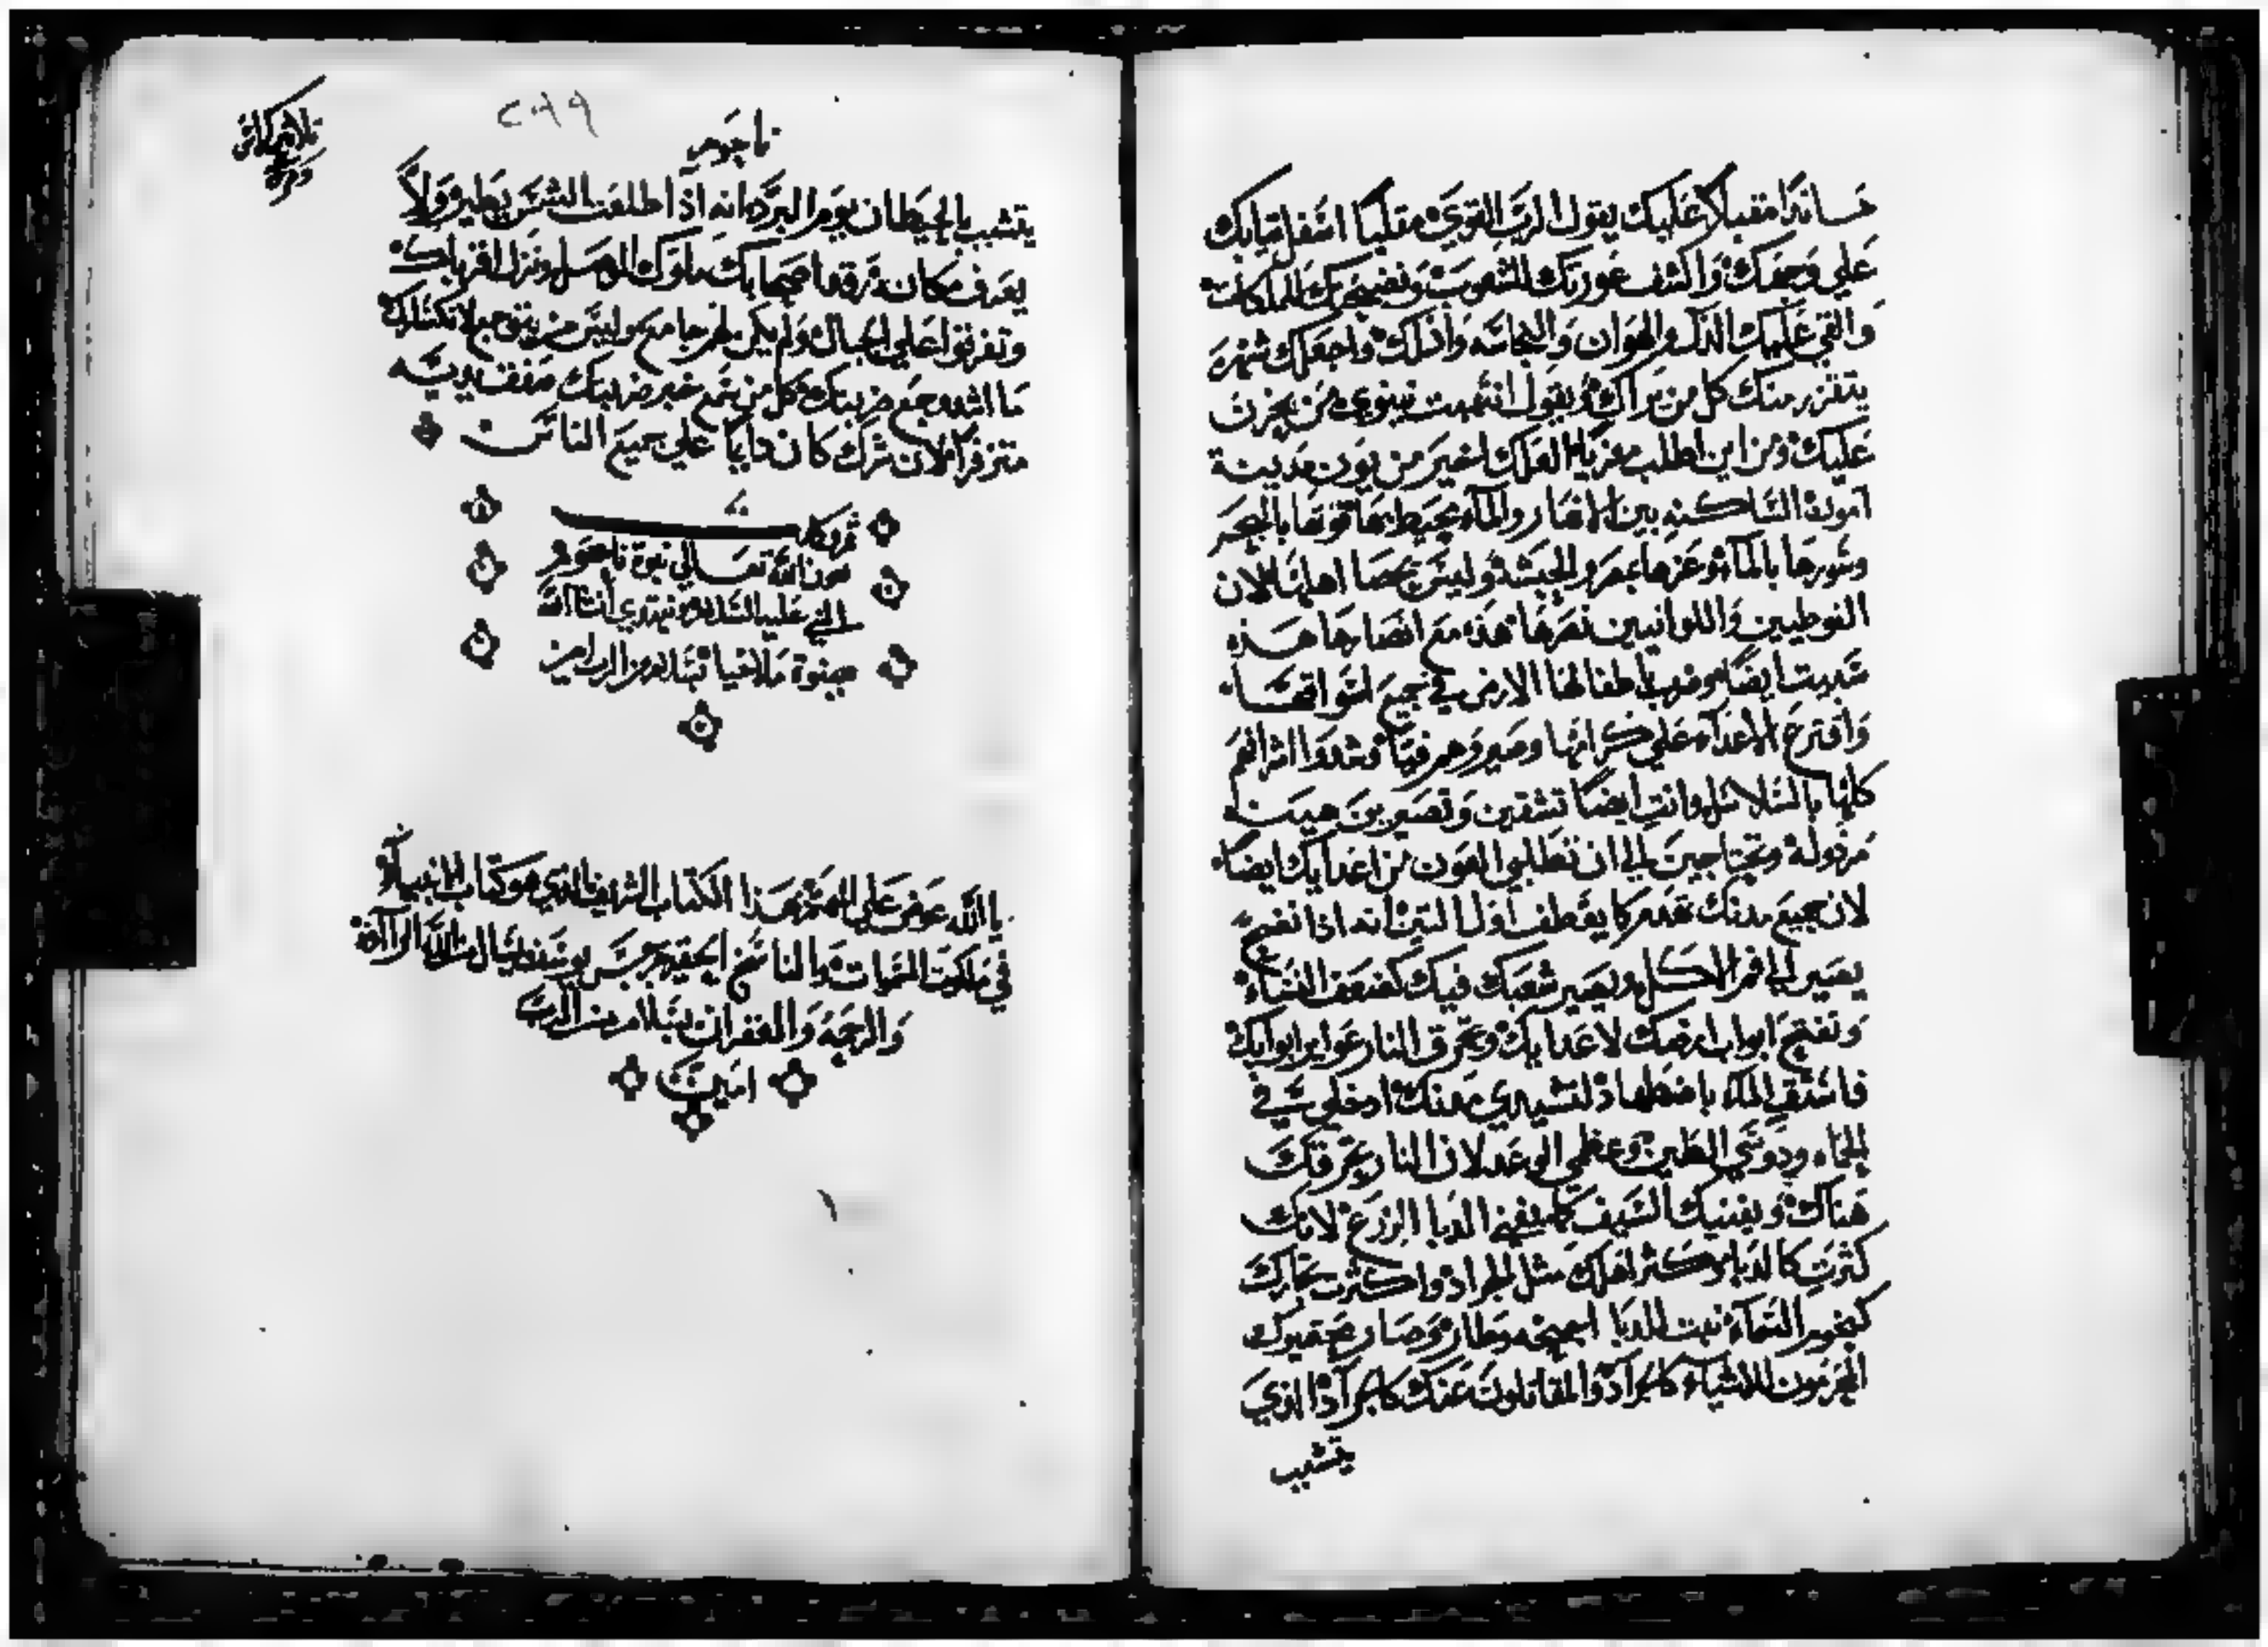 هانذا مقبلاً عليك يقول الرب القوي مقلبًا اسفل ثيابك
علي وجهك واكشف عورتك للشعوب وفضيحتك للملكات
والقي عليك الذل والهوان والنجاسه واذلك واجعلك شهرة
يتقزز منك كل من يراك ويقول انتهبت نينوي من يحزن
عليك ومن اين اطلب معزيا لعلك اخير من يون مدينة
امون الساكنه بين الانهار والماء يحيط بها قوتها بالبحر
وسورها بالماء وعزها بمصر والحبشه وليس يحصا اهلها لان
الفوطيين واللوانيين نصرها هذه مع انصارها هذه
سبيت ايضا وضرب باطفالها الارض في جميع اسواقها
واقترع الاعداء علي كراتها وصيروهم فيا وشدوا اشرافهم
كلها بالسلاسل وانت ايضًا تشقين وتصيرين هينه
مرذولة وتحتاجين الي ان تطلبي العون من اعدايك ايضا
لان جميع مدنك تهدم كما يقطف اول التين انه اذا نضج
يصير الي فم الاكل ويصير شعبك فيك كضعف النساء
وتفتح ابواب ارضك لاعدايك وتحرق النار عوابر ابوابك
فاستقي الماء باضطهاد لتشيدي مدنك ادخلي في
الحماه ودوسي الطين وعظمي الوعد لان النار تحرقك
هناك ويفنيك السيف كما يفني الدبا الزرع لانك
كثرت كالدبا وكثر اهلك مثل الجراد واكثرت تجارك
كنجوم السماء نبت للدبا اجنحه وطار وصار محقبوك
المحزمون للاشياء كالجراد والمقاتلون عنك كالجراد الذي
يتشبب
ناحوم
٢٠٩٩
يتشبب بالحيطان يوم البرد انه اذا طلعت الشمس يطير ولا
يعرف مكانه رقد اصحابك ملوك الموصل ونزل اقرباك
وتفرقوا علي الجبال ولم يكن لهم جامع وليس من يتوجع لانكسارك
ما اشد وجع ضربتك كل من سمع خبر ضربتك صفق يديه
لان شرك كان دايمًا علي جميع الناس
عون الله تعالي نبوة ناحوم
النبي عليه السلام
نبوة ملاخيا بسلام من الرب امين
يا الله عوض علي المهتم بهذا الكتاب الشريف الذي هو كتاب الانبياء
في ملكوت السموات والناسخ الحقير جرجس يوسف يسال من الله الرآفه
والرحمة والغفران بسلام من الرب
امين